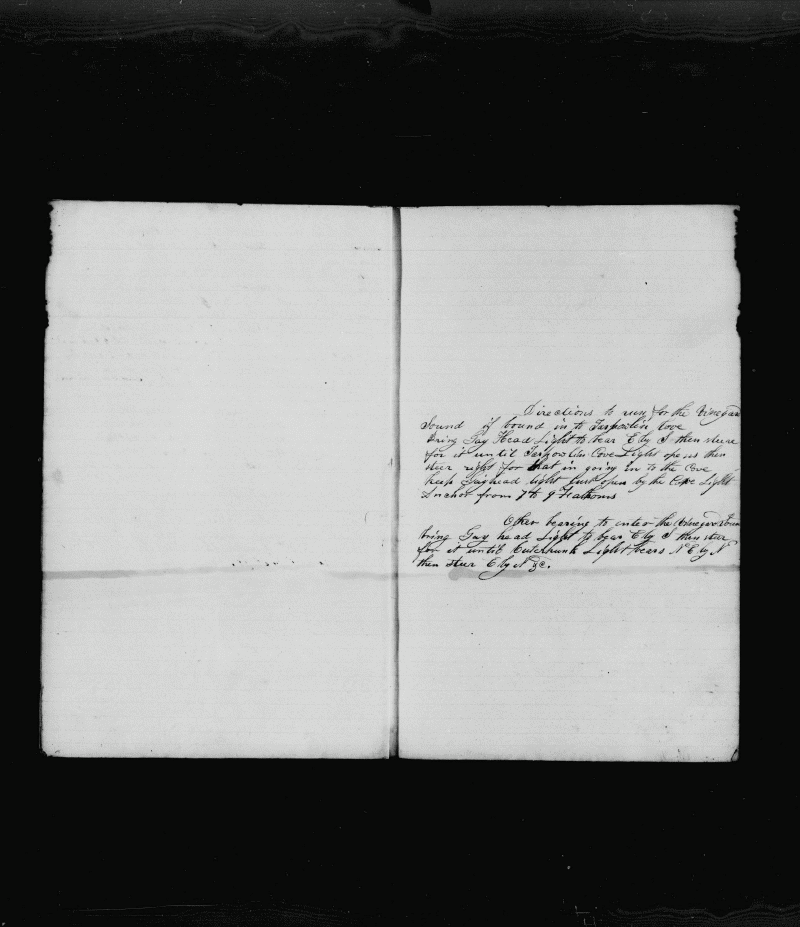 Directions to run for the Vinegard
Sound if bound in to Tarpolin Cove
Bring Gay Head Light to bear E by S then steere
for it until Tarpolin Cove Light opens then
steer right for that in going in to the Cove
keep Gayhead light just open by the Cove Light
Anchor from 7 to 9 Fathoms
Other bearing to enter the Vinegard Soun
bring Gay head Light to bear E by S then steer
for it until Cuterhunk Light bears N E by N
then steer E by N &c.